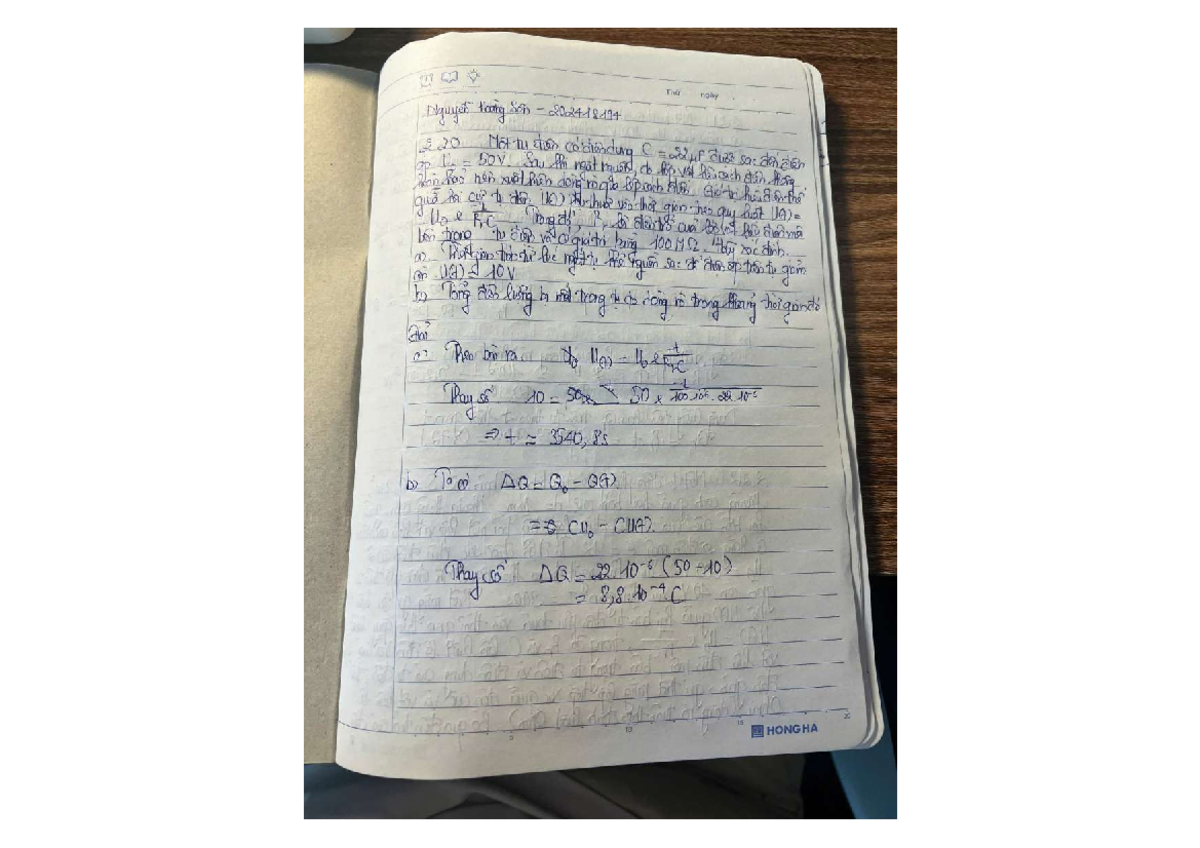 Thứ ngày
Hoàng Sơn - 20241
2.20 Một tụ điện có điện dung C = 22μF được sạc đến điện
áp U₀ = 50V. Sau khi ngắt nguồn, do lớp vật liệu cách điện không
hoàn hảo nên xuất hiện dòng rò qua lớp cách điện. hiệu điện thế
quả hai cực tụ điện U(t) phụ thuộc vào thời gian theo quy luật U(t) =
U₀ e -t/RrC Trong đó, Rr là điện trở của lớp vật liệu điện môi
bên trong tụ điện và có giá trị bằng 100MΩ. Hãy xác định.
a) Thời gian tính từ lúc ngắt tụ khỏi nguồn sạc để điện áp trên tụ giảm
còn U(t) = 10V
b) Tổng điện lượng bị mất trong tụ do dòng rò trong khoảng thời gian đó
Giải
a) Theo bài ra U(t) = U₀ e -t/RrC
Thay số 10 = 50 x -t/100.10⁶.22.10⁻⁶
=> t ≈ 3540,8s
b) Ta có ΔQ = Q₀ - Q(t)
= CU₀ - CU(t)
Thay số ΔQ = 22.10⁻⁶ (50-10)
= 8,8.10⁻⁴ C
5 10 15 20
HONG HA